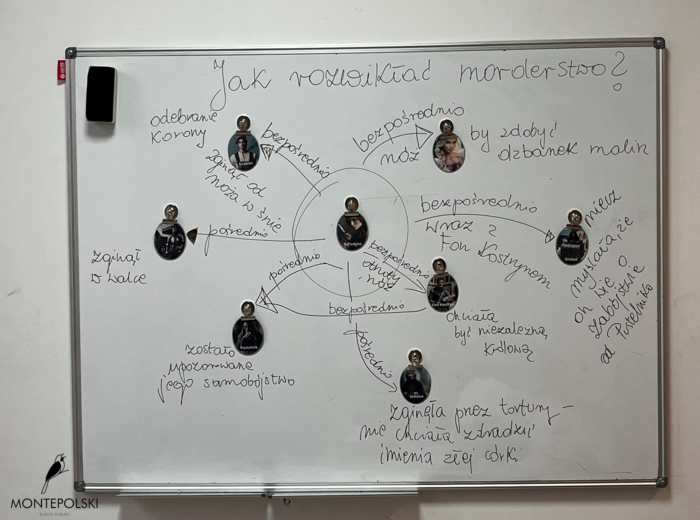 Jak rozwikłać morderstwo?
odebranie
Korony
bezpośrednio
zginął od
noża w śnie
bezpośrednio
nóż
by zdobyć
dzbanek malin
pośrednio
zginął
w walce
bezpośrednio
wraz z
Fon Kostrynem
miecz
myślała, że
on wie o
zabójstwie
od Pustelnika
bezpośrednio
otruty,
nóż
chciała
być niezależną
Królową
pośrednio
bezpośrednio
zostało
upozorowane
jego samobójstwo
pośrednio
zginęła przez tortury –
nie chciała zdradzić
imienia złej córki
MONTEPOLSKI